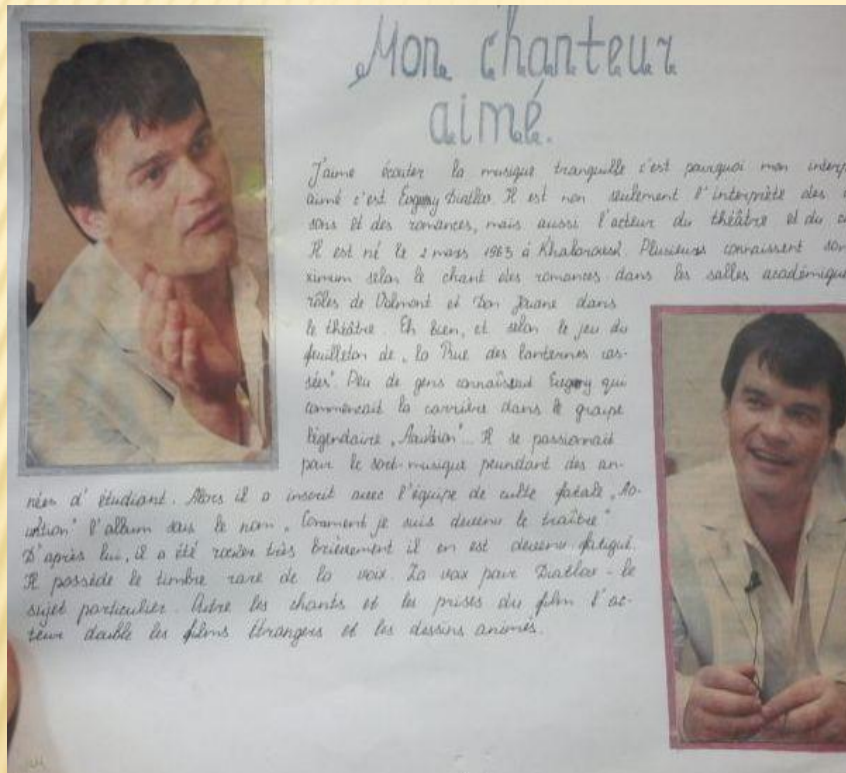 Mon chanteur
aimé.
J'aime écouter la musique tranquille c'est pourquoi mon interp
aimé c'est Evgeny Diatlov Il est non seulement l'interprète des
sons et des romances, mais aussi l'acteur du théâtre et du
Il est né le 2 mars 1963 à Khabarovsk. Plusieurs connaissent son
ximum selon le chant des romances dans les salles académique
rôles de Valmont et Don Jouane dans
le théâtre. Eh bien, et selon le jeu du
feuilleton de „la Rue des lanternes cas-
sées". Peu de gens connaîssent Evgeny qui
commencait la carrière dans le groupe
légendaire „Auktion"... Il se passionait
pour le musique peundant des an-
nées d'étudiant. Alors il a inscrit avec l'équipe de culte fatale „Au-
ktion" l'album sous le nom „Comment je suis devenu le traître"
D'après lui, il a été rocker très brièvement il en est devenu fatigué.
Il possède le timbre rare de la voix. La voix pour Diatlov - le
sujet particulier. Outre les chants et les prises du film l'ac-
teur double les films étrangers et les dessins animés.